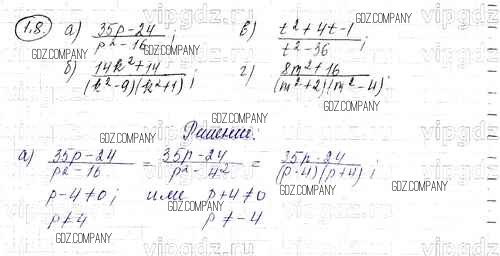 1.8. а) (35p-24)/(p²-16); в) (t²+4t-1)/(t²-36);
б) (14k²+14)/((k²-9)(k²+1)); г) (8m²+16)/((m²+2)(m²-4).
Решение:
а) (35p-24)/(p²-16) = (35p-24)/(p²-4²) = (35p-24)/((p-4)(p+4));
p-4≠0; или p+4≠0
p≠4 p≠-4
GDZ.COMPANY
vipgdz.ru